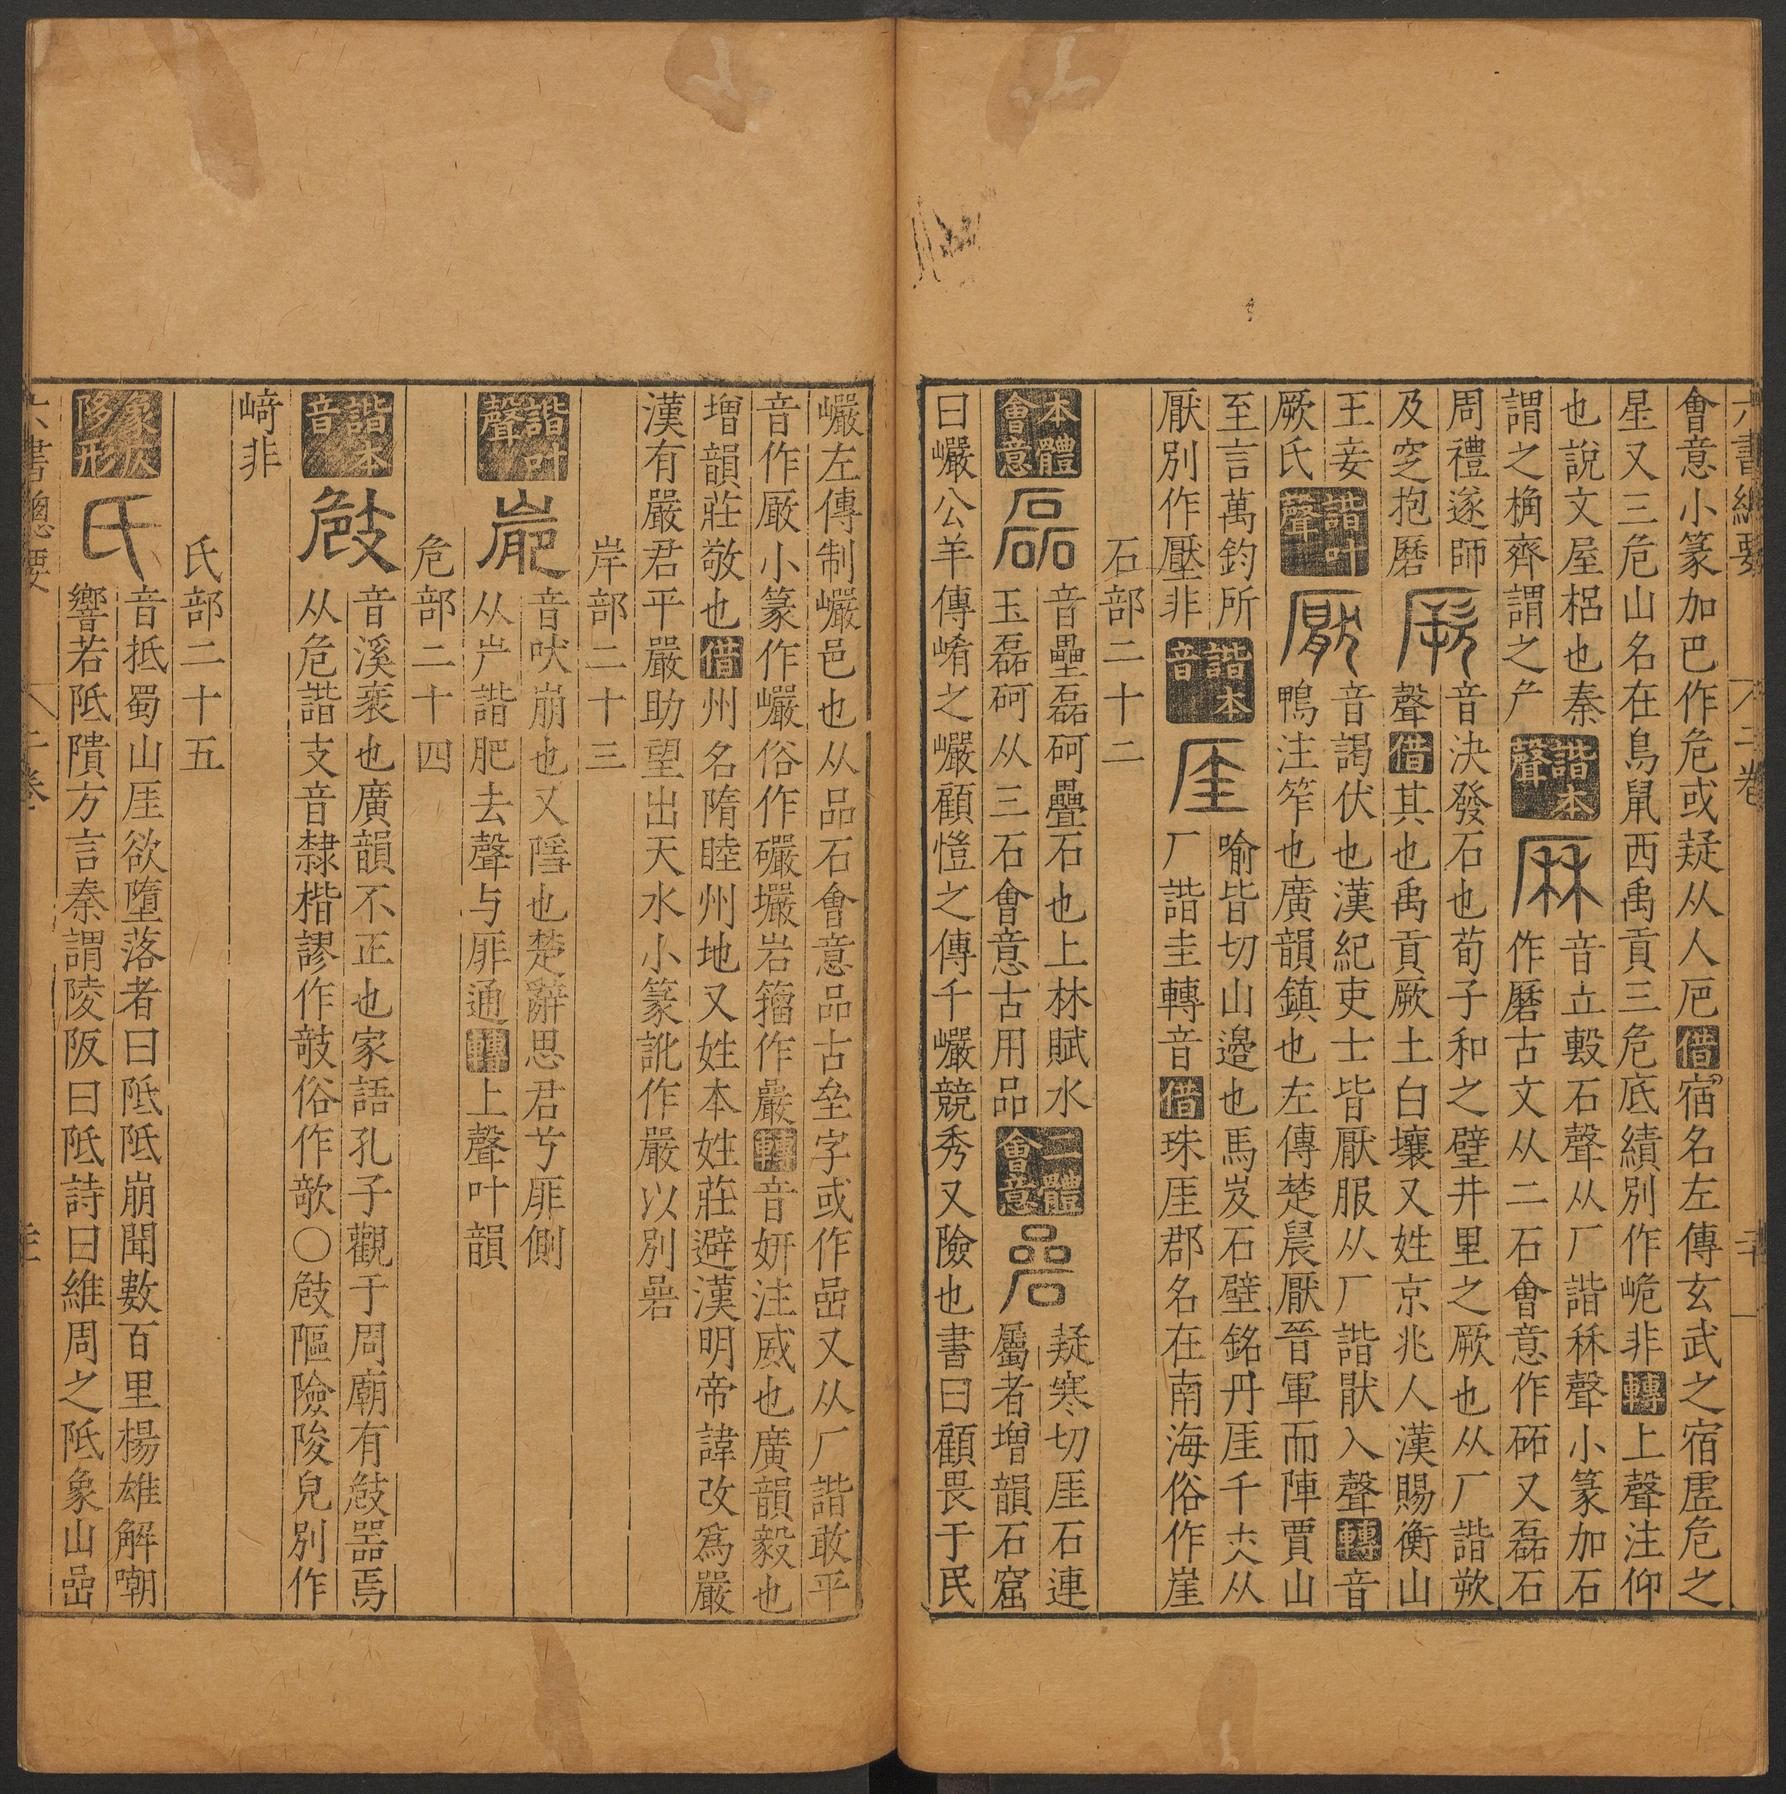 六書總要 二卷 二十
會意小篆加巴作危或疑从人厃借宿名左傳玄武之宿虛危之
星又三危山名在鳥鼠西禹貢三危底績別作峗非轉上聲注仰
也說文屋梠也秦謂之桷齊謂之厃
諧本聲 厤 音立毄石聲从厂諧秝聲小篆加石
作磿古文从二石會意作砳又磊石
周禮遂師及窆抱磿
厥 音決發石也荀子和之璧井里之厥也从厂諧欮
聲借其也禹貢厥土白壤又姓京兆人漢賜衡山
王妾厥氏
諧叶聲 厭 音謁伏也漢紀吏士皆厭服从厂諧猒入聲轉音
鴨注笮也廣韻鎮也左傳楚晨厭晉軍而陣賈山
至言萬鈞所厭別作壓非
諧本音 厓 喻皆切山邊也馬岌石壁銘丹厓千丈从
厂諧圭轉音借珠厓郡名在南海俗作崖
石部二十二
本體會意 磊 音壘磊砢疊石也上林賦水
玉磊砢从三石會意古用品
二體會意 喦 疑寒切厓石連
屬者增韻石窟
曰巗公羊傳崤之巗顧愷之傳千巗競秀又險也書曰顧畏于民
巗左傳制巗邑也从品石會意品古垒字或作嵒又从厂諧敢平
音作厰小篆作巗俗作礹壧岩籀作巖轉音妍注威也廣韻毅也
增韻莊敬也借州名隋睦州地又姓本姓莊避漢明帝諱改爲嚴
漢有嚴君平嚴助望出天水小篆訛作嚴以別喦
岸部二十三
諧叶聲 音吠崩也又隱也楚辭思君兮厞側
从屵諧肥去聲与厞通轉上聲叶韻
危部二十四
諧本音 㩻 音溪衺也廣韻不正也家語孔子觀于周廟有㩻器焉
从危諧支音隸楷謬作攲俗作欹○㩻陬險陖皃別作
﨑非
氏部二十五
象仄侈形 氏 音抵蜀山厓欲墮落者曰阺阺崩聞數百里楊雄解嘲
響若阺隤方言秦謂陵阪曰阺詩曰維周之阺象山嵒
六書總要 二卷